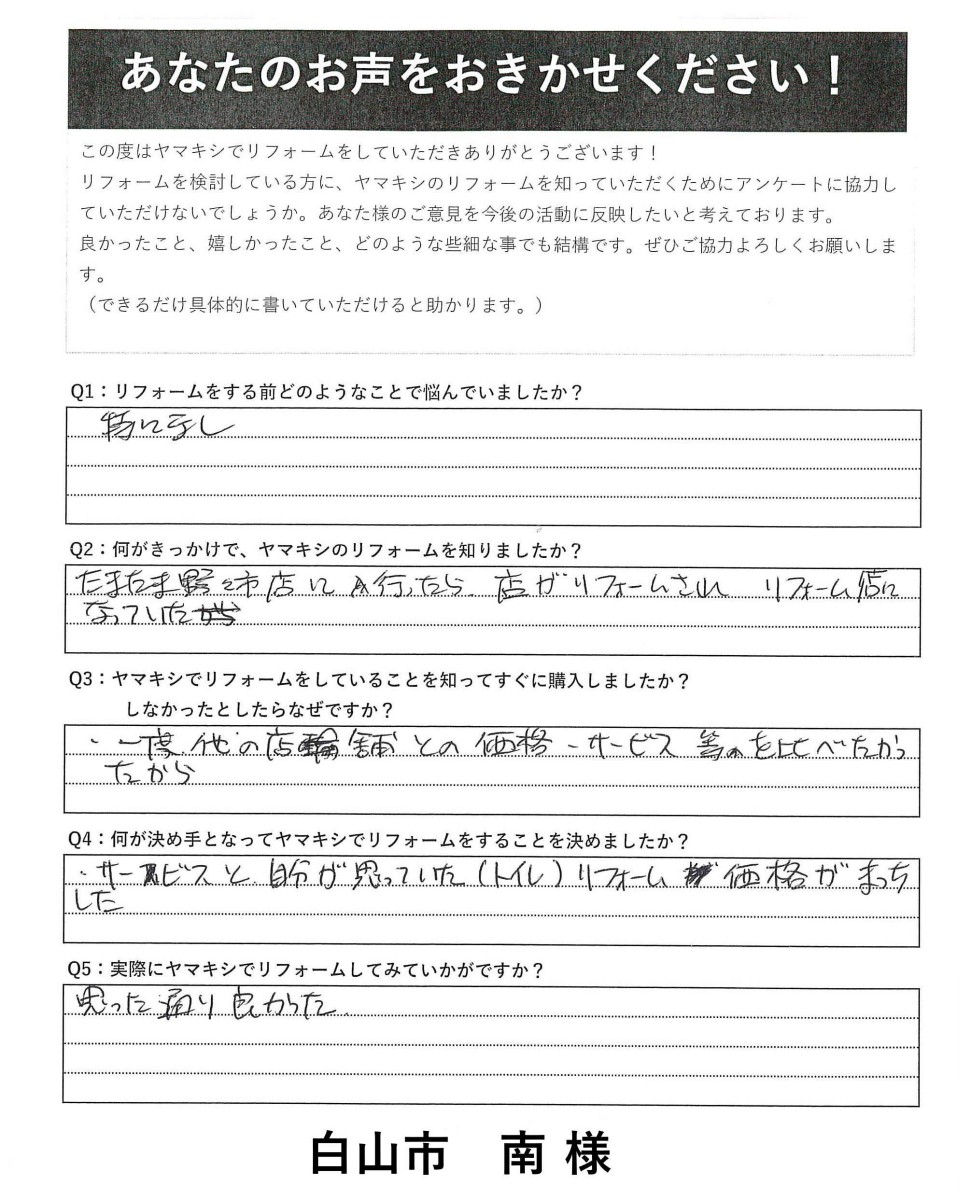 あなたのお声をおきかせください！
この度はヤマキシでリフォームをしていただきありがとうございます！
リフォームを検討している方に、ヤマキシのリフォームを知っていただくためにアンケートに協力し
ていただけないでしょうか。あなた様のご意見を今後の活動に反映したいと考えております。
良かったこと、嬉しかったこと、どのような些細な事でも結構です。ぜひご協力よろしくお願いしま
す。
（できるだけ具体的に書いていただけると助かります。）
Q1：リフォームをする前どのようなことで悩んでいましたか？
特になし
Q2：何がきっかけで、ヤマキシのリフォームを知りましたか？
たまたま野々市店に行ったら、店がリフォームされ リフォーム店に
なっていた
Q3：ヤマキシでリフォームをしていることを知ってすぐに購入しましたか？
しなかったとしたらなぜですか？
・一度、他の店舗との価格、サービス等を比べたかっ
たから
Q4：何が決め手となってヤマキシでリフォームをすることを決めましたか？
・サービスと自分が思っていた（トイレ）リフォーム価格がまっち
した
Q5：実際にヤマキシでリフォームしてみていかがですか？
思った通り良かった。
白山市 南 様